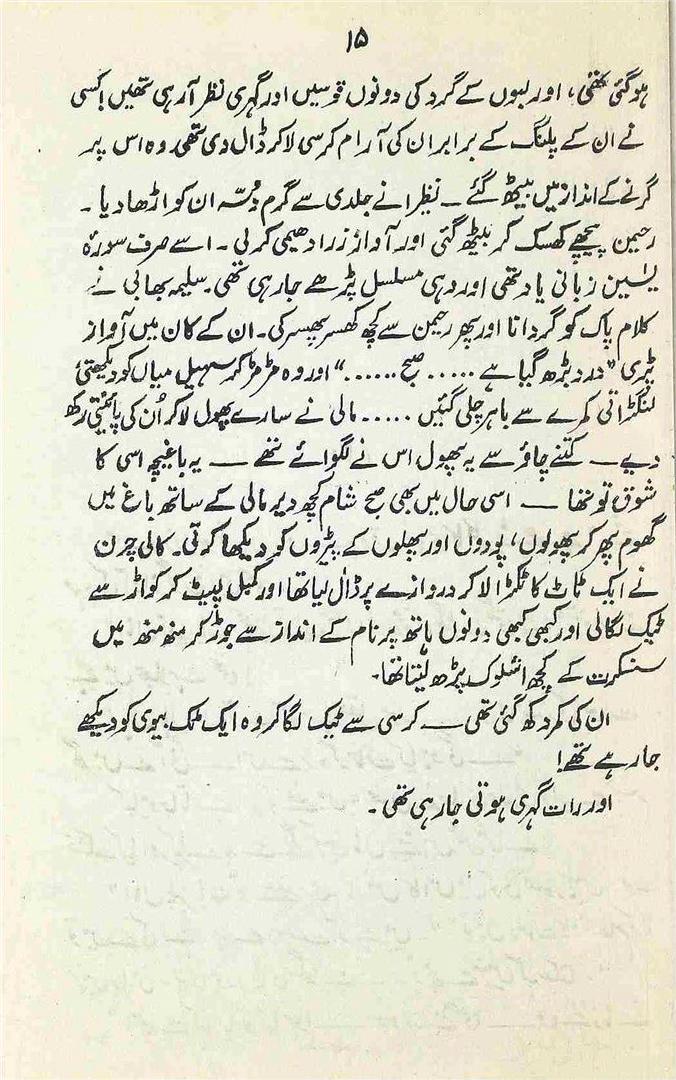 ۱۵
ہوگئی تھی، اور لبوں کے گرد کی دونوں قوسیں اور گہری نظر آرہی تھیں! کسی
نے ان کے پلنگ کے برابر ان کی آرام کرسی لاکر ڈال دی تھی۔ وہ اس پر
گرنے کے انداز میں بیٹھ گئے ۔ نظیرا نے جلدی سے گرم دُسّہ ان کو اڑھا دیا ۔
رحیمن پیچھے کھسک کر بیٹھ گئی اور آواز ذرا دھیمی کرلی ۔ اسے صرف سورۂ
یٰسین زبانی یاد تھی اور وہی مسلسل پڑھے جارہی تھی ۔ سلیمہ بھابی نے
کلام پاک کو گردانا اور پھر رحیمن سے کچھ کھسر پھسر کی ۔ ان کے کان میں آواز
پڑی "درد بڑھ گیا ہے ..... صبح ......" اور وہ مڑ مڑ کر سہیل میاں کو دیکھتی
لنگڑاتی کمرے سے باہر چلی گئیں ..... مالی نے سارے پھول لاکر اُن کی پائنتی رکھ
دیے ـــ کتنے چاؤ سے یہ پھول اس نے لگوائے تھے ـــ یہ باغیچہ اسی کا
شوق تو تھا ـــ اسی حال میں بھی صبح شام کچھ دیر مالی کے ساتھ باغ میں
گھوم پھر کر پھولوں، پودوں اور پھلوں کے پیڑوں کو دیکھا کرتی ۔ کالی چرن
نے ایک ٹاٹ کا ٹکڑا لاکر دروازے پر ڈال لیا تھا اور کمبل لپیٹ کر کواڑ سے
ٹیک لگالی اور کبھی کبھی دونوں ہاتھ پرنام کے انداز سے جوڑ کر منھ منھ میں
سنسکرت کے کچھ اشلوک پڑھ لیتا تھا ۔
ان کی کمر دکھ گئی تھی ـــ کرسی سے ٹیک لگا کر وہ ایک ٹک بیوی کو دیکھے
جارہے تھے!
اور رات گہری ہوتی جارہی تھی ۔